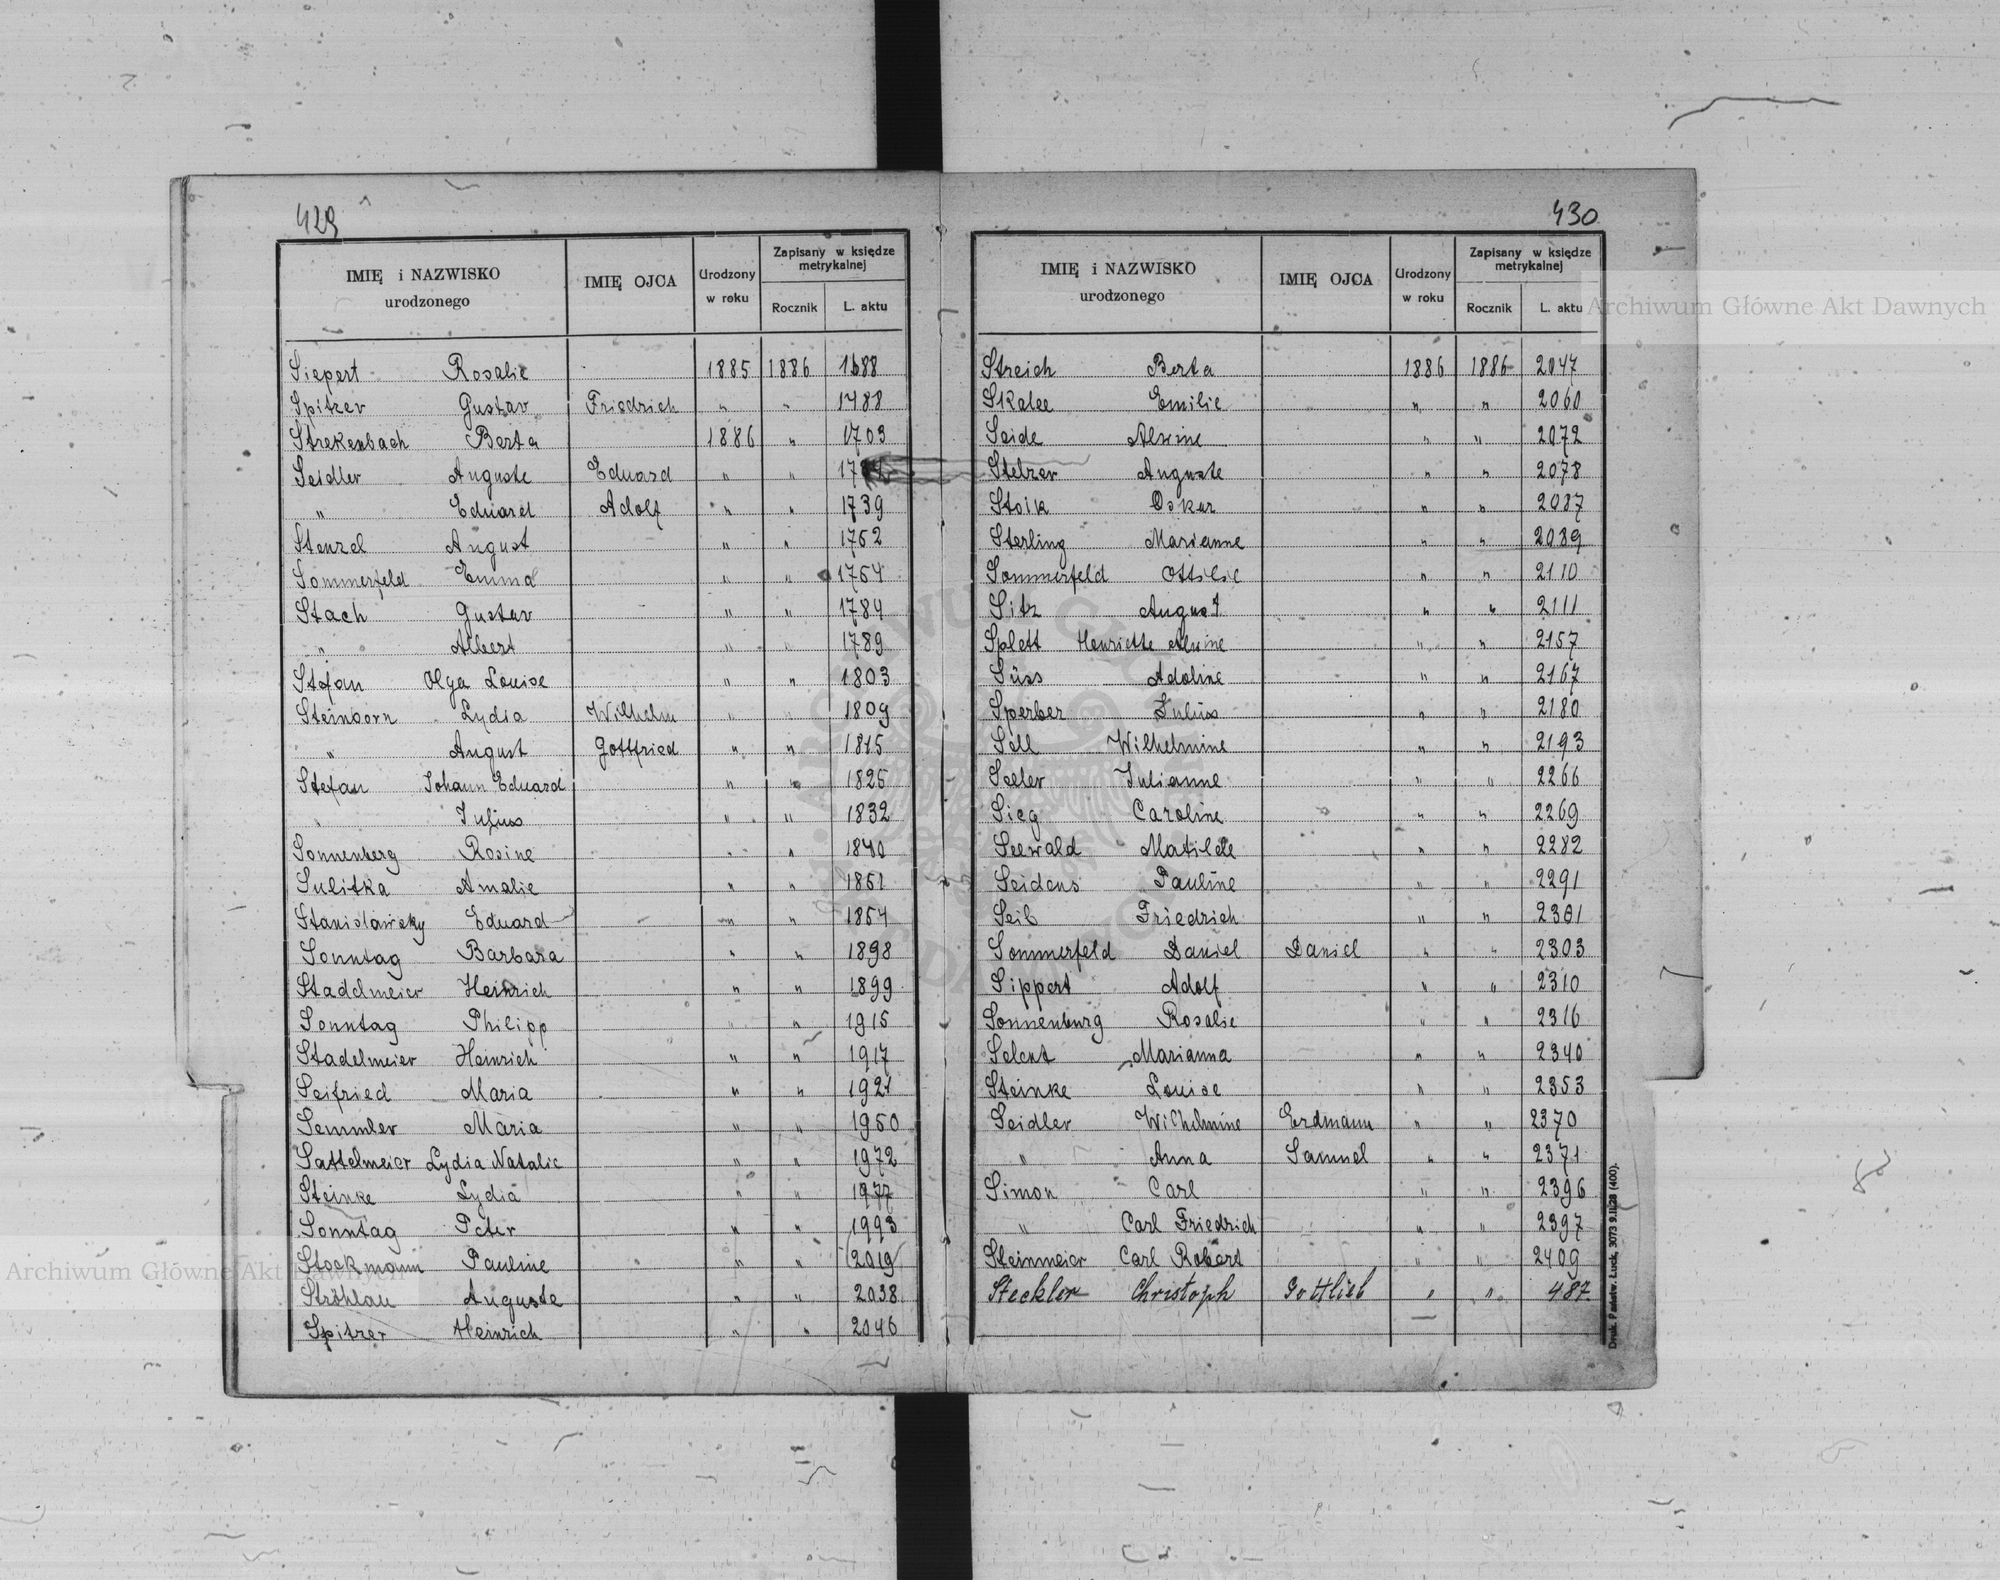 429
IMIĘ i NAZWISKO urodzonego IMIĘ OJCA Urodzony w roku Zapisany w księdze metrykalnej Rocznik L. aktu
Siepert Rosalie 1885 1886 1688
Spitzer Gustav Friedrich " " 1488
Strekenbach Berta 1886 " 1703
Seidler Auguste Eduard " "
" Eduard Adolf " " 1739
Stenzel August " " 1752
Sommerfeld Emma " " 1754
Stach Gustav " " 1784
" Albert " " 1789
Stefan Olga Louise " " 1803
Steinborn Lydia Wilhelm " " 1809
" August Gottfried " " 1815
Stefan Johann Eduard " " 1825
" Julius " " 1832
Sonnenberg Rosine " " 1840
Sulitka Amalie " " 1851
Stanislawsky Eduard " " 1854
Sonntag Barbara " " 1898
Stadelmeier Heinrich " " 1899
Sonntag Philipp " " 1915
Stadelmeier Heinrich " " 1917
Seifried Maria " " 1921
Semmler Maria " " 1950
Sattelmeier Lydia Natalie " " 1972
Steinke Lydia " " 1977
Sonntag Peter " " 1993
Stockmann Pauline " " 2019
Ströhlau Auguste " " 2038
Spitzer Heinrich " " 2046
430
IMIĘ i NAZWISKO urodzonego IMIĘ OJCA Urodzony w roku Zapisany w księdze metrykalnej Rocznik L. aktu
Streich Berta 1886 1886 2047
Skalee Emilie " " 2060
Seide Alwine " " 2072
Stelzer Auguste " " 2078
Stoik Oskar " " 2087
Sterling Marianne " " 2089
Sommerfeld Ottilie " " 2110
Sitz August " " 2111
Splett Henriette Alwine " " 2157
Süss Adoline " " 2167
Sperber Julius " " 2180
Sell Wilhelmine " " 2193
Seeler Julianne " " 2266
Sieg Caroline " " 2269
Seewald Matilde " " 2282
Seidens Pauline " " 2291
Seib Friedrich " " 2301
Sommerfeld Daniel Daniel " " 2303
Sippert Adolf " " 2310
Sonnenburg Rosalie " " 2316
Selent Marianna " " 2340
Steinke Louise " " 2353
Seidler Wilhelmine Erdmann " " 2370
" Anna Samuel " " 2371
Simon Carl " " 2396
" Carl Friedrich " " 2397
Steinmeier Carl Robert " " 2409
Steckler Christoph Gottlieb " " 487
Druk. Państw. Łuck, 3073 9.II.28 (400).
Archiwum Główne Akt Dawnych
Archiwum Główne Akt Dawnych